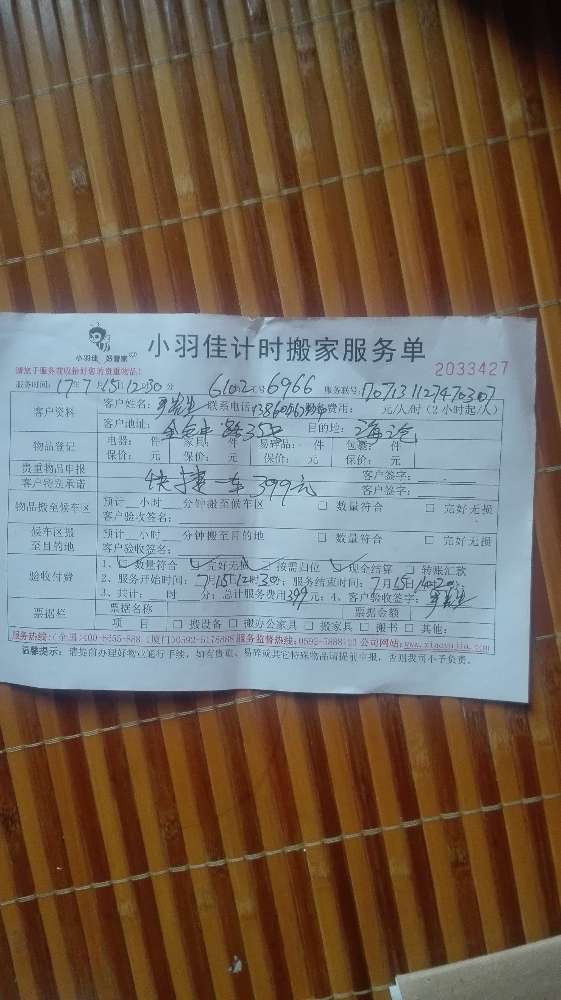 小羽佳 好管家
小羽佳计时搬家服务单
2033427
请您于服务前收拾好您的贵重物品!
服务时间: 17年7月15日12时30分 6102工号6966 服务联号: 1707131127470307
客户资料 客户姓名: 联系电话: 费用: 元/人/时 (2小时起/人)
客户地址: 目的地:
物品登记 电器: 件 家具: 件 易碎品: 件 包裹: 件
保价: 元 保价: 元 保价: 元 保价: 元
贵重物品申报 客户签字:
客户特别承诺 快捷一车399元 客户签字:
物品搬至候车区 预计 小时 分钟搬至候车区 □ 数量符合 □ 完好无损
客户验收签名:
候车区搬至目的地 预计 小时 分钟搬至目的地 □ 数量符合 □ 完好无损
客户验收签名:
验收付费 1、 数量符合 完好无损 按需归位 现金结算 □ 转账汇款
2、服务开始时间: 7月15日12时30分; 服务结束时间: 7月15日14时20分;
3、共计: 时 分; 总计服务费用399元; 4、客户验收签字:
票据栏 票据名称 票据金额
项 目 □ 搬设备 □ 搬办公家具 □ 搬家具 □ 搬书 □ 其他:
服务热线: (全国)400-8855-888 (厦门)0592-5178888 服务监督热线: 公司网站:
温馨提示: 请提前办理好物业通行手续, 如有贵重、易碎或其它特殊物品请提前申报, 否则我司不予负责。